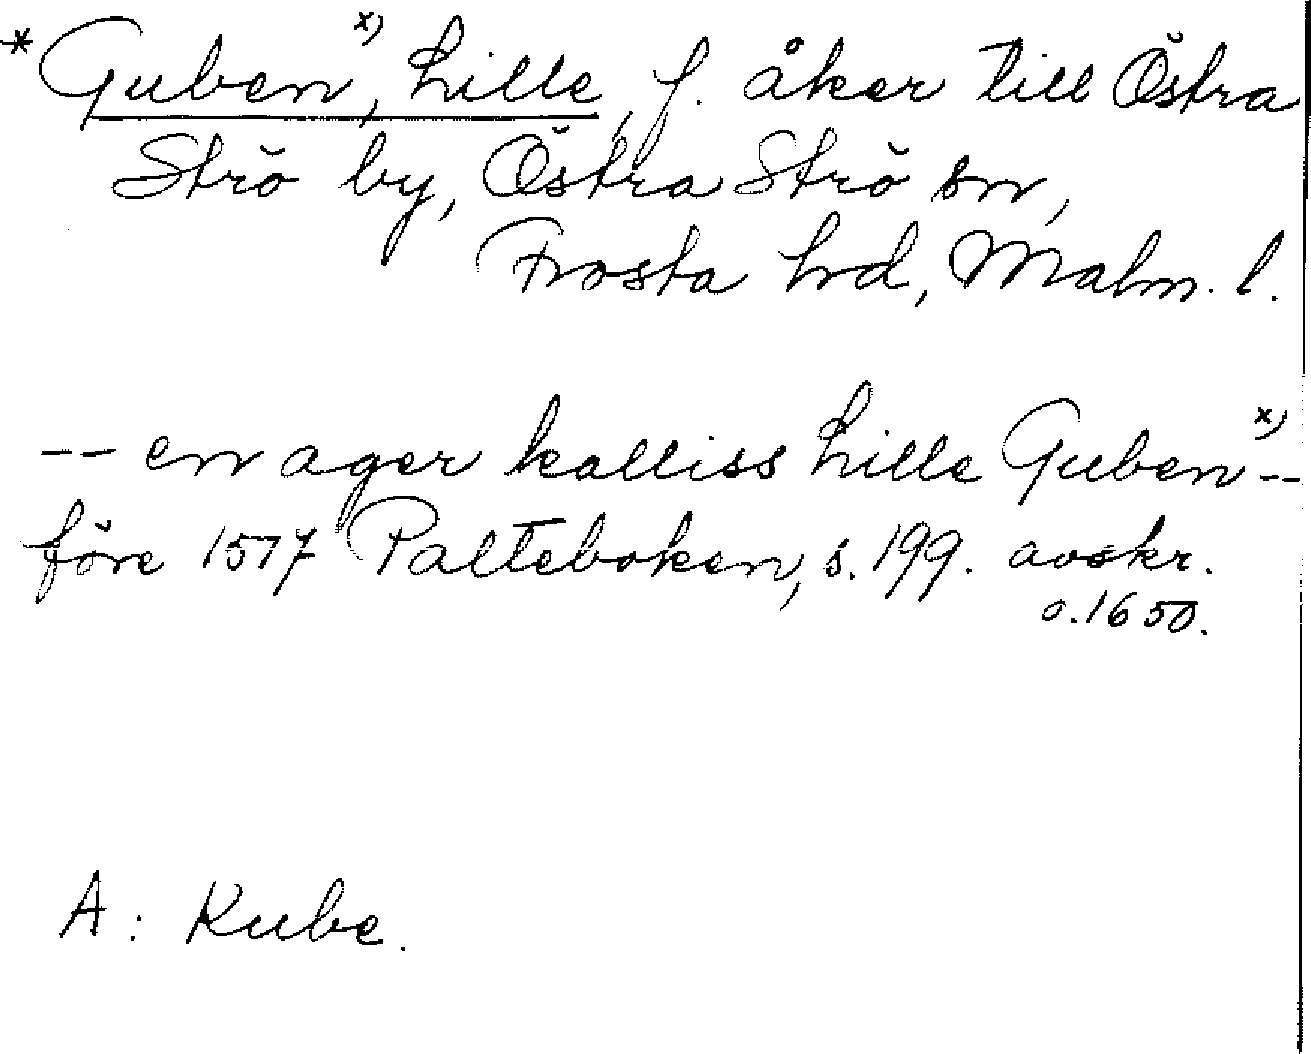 * Guben x), Lille, f. åker till Östra
Strö by, Östra Strö sn,
Frosta hrd, Malm. l.
-- en ager kalliss Lille Guben x) --
före 1577 Palteboken, s. 199. avskr.
o. 1650.
A: Kube.